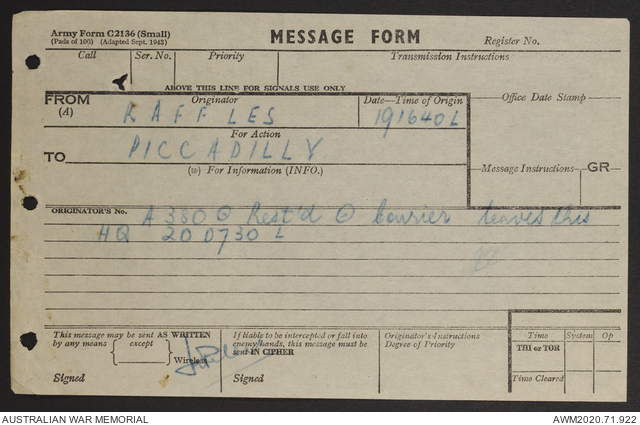 Army Form C2136 (Small)
(Pads of 100) (Adapted Sept. 1943)
MESSAGE FORM
Register No.
Call Ser. No. Priority Transmission Instructions
ABOVE THIS LINE FOR SIGNALS USE ONLY
FROM Originator Date—Time of Origin Office Date Stamp
(A) RAFFLES 191640L
For Action
TO PICCADILLY
(w) For Information (INFO.) Message Instructions GR
ORIGINATOR'S No. A380 Rest'd Courier leaves this
HQ 200730 L
This message may be sent AS WRITTEN
by any means except
Wireless
Signed
If liable to be intercepted or fall into
enemy hands, this message must be
sent IN CIPHER
Signed
Originator's Instructions
Degree of Priority
Time System Op
THI or TOR
Time Cleared
AUSTRALIAN WAR MEMORIAL AWM2020.71.922